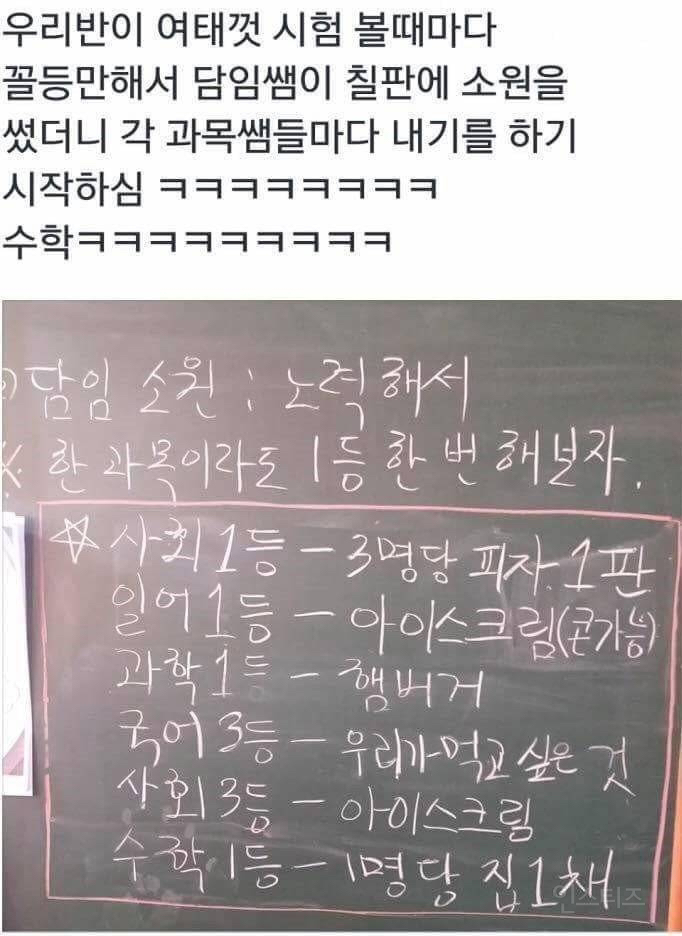 우리반이 여태껏 시험 볼때마다
꼴등만해서 담임쌤이 칠판에 소원을
썼더니 각 과목쌤들마다 내기를 하기
시작하심 ㅋㅋㅋㅋㅋㅋㅋㅋ
수학ㅋㅋㅋㅋㅋㅋㅋㅋㅋ
담임 소원 : 노력해서
※ 한 과목이라도 1등 한 번 해보자.
☆ 사회 1등 - 3명당 피자 1판
일어 1등 - 아이스크림(콘가능)
과학 1등 - 햄버거
국어 3등 - 우리가 먹고 싶은 것
사회 3등 - 아이스크림
수학 1등 - 1명당 집 1채
인스티즈